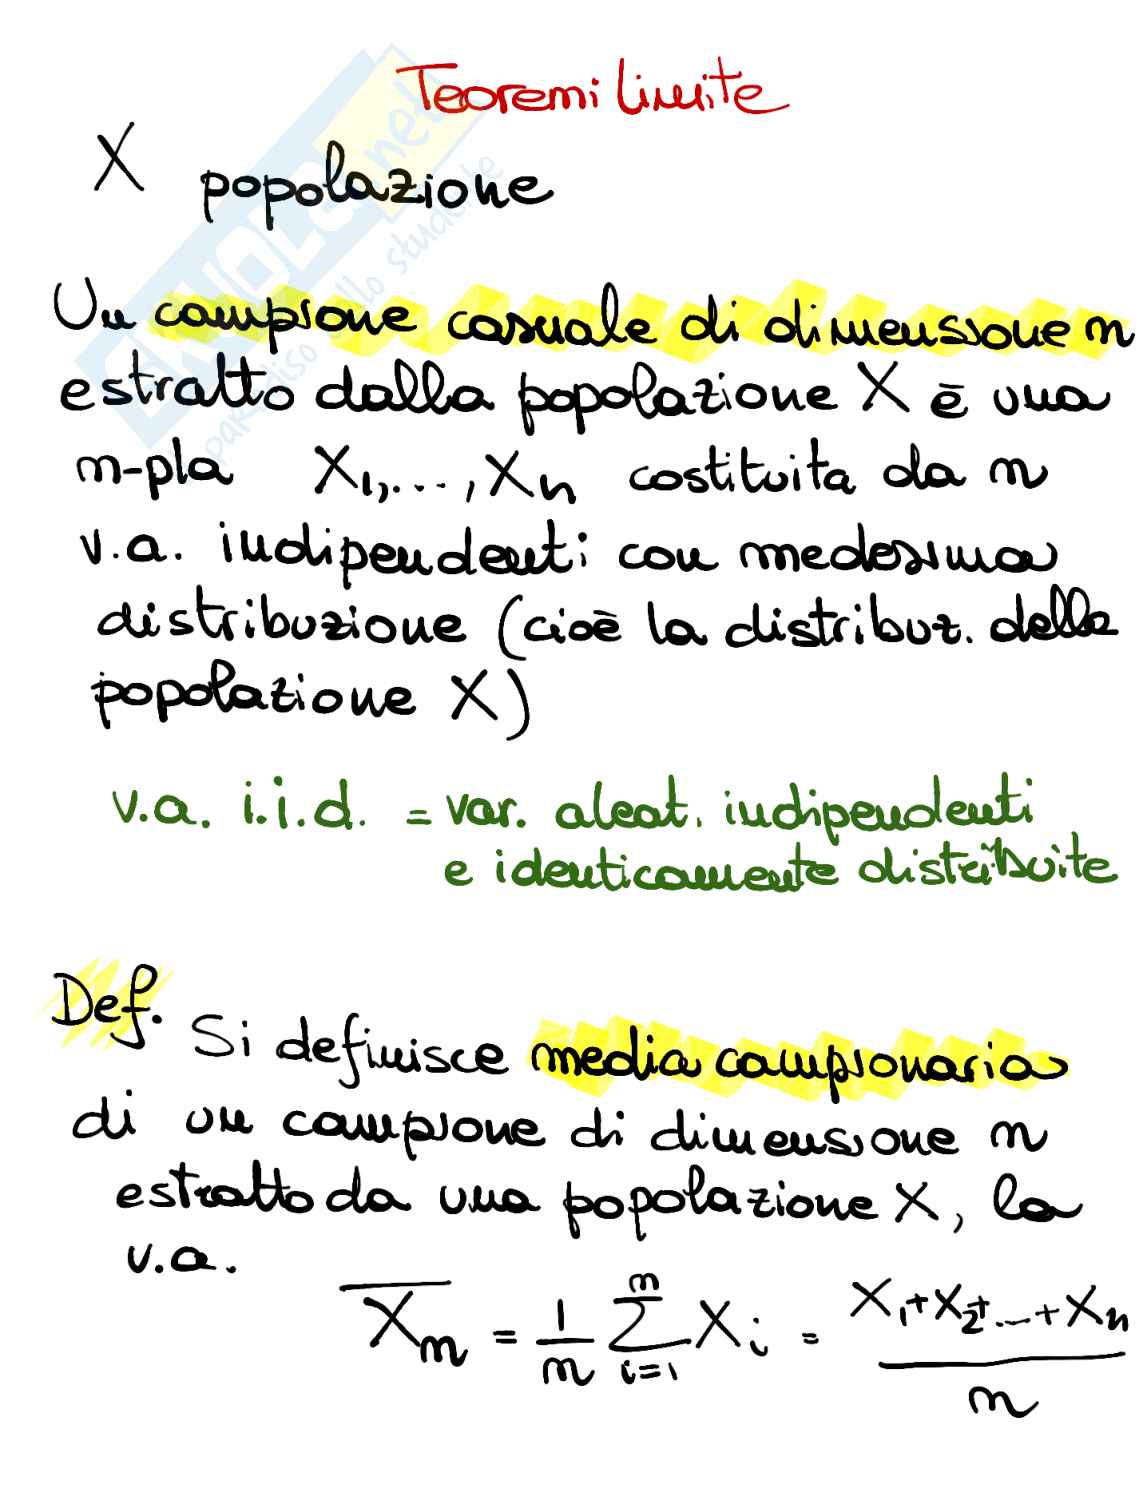 Teoremi limite
X popolazione
Un campione casuale di dimensione n
estratto dalla popolazione X è una
n-pla X₁,...,Xₙ costituita da n
v.a. indipendenti con medesima
distribuzione (cioè la distribuz. della
popolazione X)
v.a. i.i.d. = var. aleat. indipendenti
e identicamente distribuite
Def. Si definisce media campionaria
di un campione di dimensione n
estratto da una popolazione X, la
v.a.
X̄ₙ = 1/n ∑ᵢ₌₁ⁿ Xᵢ = (X₁+X₂+...+Xₙ)/n
SKUOLA.net
paradiso dello studente